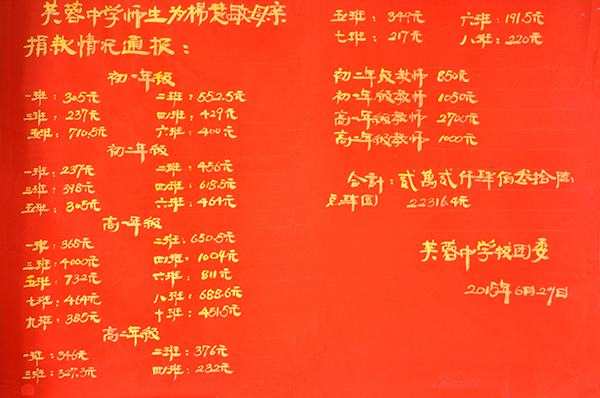 芙蓉中学师生为杨慧敏母亲
捐款情况通报：
初一年级
一班：305元 二班：552.5元
三班：237元 四班：429元
五班：710.5元 六班：400元
初二年级
一班：237元 二班：456元
三班：398元 四班：618.5元
五班：305元 六班：464元
高一年级
一班：368元 二班：650.5元
三班：4000元 四班：1004元
五班：732元 六班：811元
七班：464元 八班：688.6元
九班：385元 十班：451.5元
高二年级
一班：346元 二班：376元
三班：327.3元 四班：232元
五班：349元 六班：191.5元
七班：217元 八班：220元
初二年级教师 850元
初一年级教师 1050元
高一年级教师 2700元
高二年级教师 1000元
合计：贰萬贰仟肆佰叁拾陆
点肆圆 22316.4元
芙蓉中学校团委
2015年6月29日